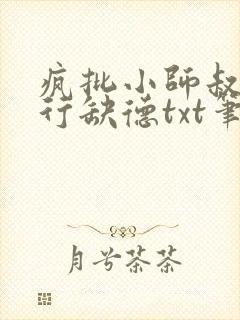 疯批小师叔
行缺德txt笔
月兮茶茶